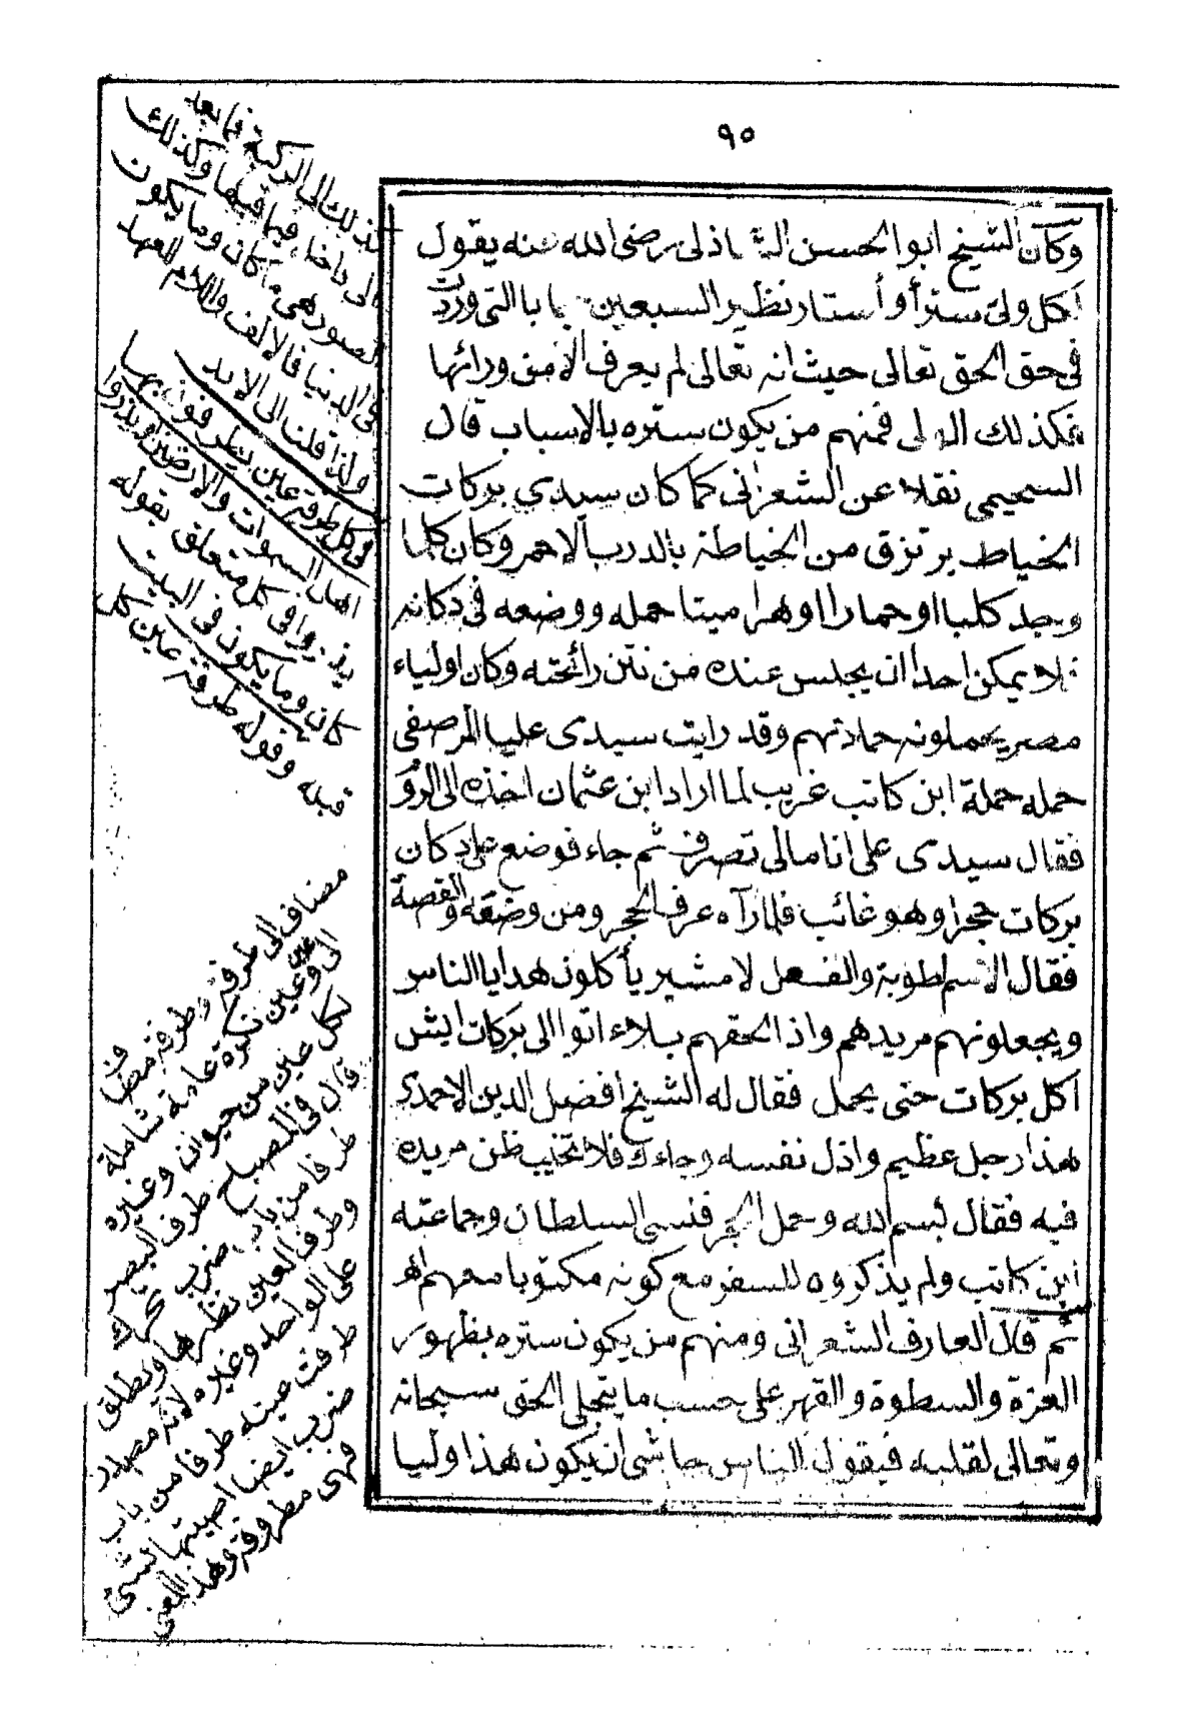 ٩٥
وكان الشيخ ابوالحسن الشاذلى رضى الله عنه يقول
لكل ولى ستر أو أستار نظير السبعين بابا التى وردت
فى حق الحق تعالى حيث انه تعالى لم يعرف الا من ورائها
فكذلك الولى فمنهم من يكون ستره بالاسباب قال
السحيمى نقلا عن الشعرانى كما كان سيدى بركات
الخياط يرتزق من الخياطة بالدرب الاحمر وكان كلما
وجد كلبا او حمارا او هرا ميتا حمله ووضعه فى دكانه
فلا يمكن احدا ان يجلس عنده من نتن رائحته وكان اولياء
مصر يحملونه حملاتهم وقد رايت سيدى عليا المرصفى
حمله حملة ابن كاتب غريب لما اراد ابن عثمان اخذه الى الروم
فقال سيدى على انا مالى تصرف ثم جاء فوضع على دكان
بركات حجرا وهو غائب فلما رآه عرف الحجر ومن وضعه والقصة
فقال الاسم لطوبة والفعل لامشير يأكلون هدايا الناس
ويجعلونهم مريدهم واذا لحقهم بلاء اتوا الى بركات ايش
اكل بركات حتى يحمل فقال له الشيخ افضل الدين الاحمدى
هذا رجل عظيم واذل نفسه وجاءك فلا تخيب ظن مريده
فيه فقال بسم الله وحمل الحجر فنسى السلطان وجماعته
ابن كاتب ولم يذكروه للسفر مع كونه مكتوبا معهم اهـ
ثم قال العارف الشعرانى ومنهم من يكون ستره بظهور
العزة والسطوة والقهر على حسب ما يتجلى الحق سبحانه
وتعالى لقلبه فيقول الناس حاشى ان يكون هذا وليا
كذلك الى الركبة فما بعد
الى داخل فيها فيها وكذلك
الصور هى ما كان وما يكون
فى الدنيا فالالف واللام للعهد
ولذا قلنا الى الابد
فى كل طرفة عين يطرف بها
اهل السموات والارضين
وافى كل متعلق بقوله
كان وما يكون فى البيت
قبله وقوله طرفة عين كل
مضاف الى طرفة وطرفة مضاف
الى عين وعين نكرة عامة شاملة
لكل عين من حيوان وغيره
قال فى المصباح طرف البصر
طرفا من باب ضرب تحرك
وطرف العين نظرها ويطلق
على الواحد وغيره لانه مصدر
طرفت عينه طرفا من باب
ضرب ايضا اصبتها بشئ
فهى مطروفة وهذا المعنى